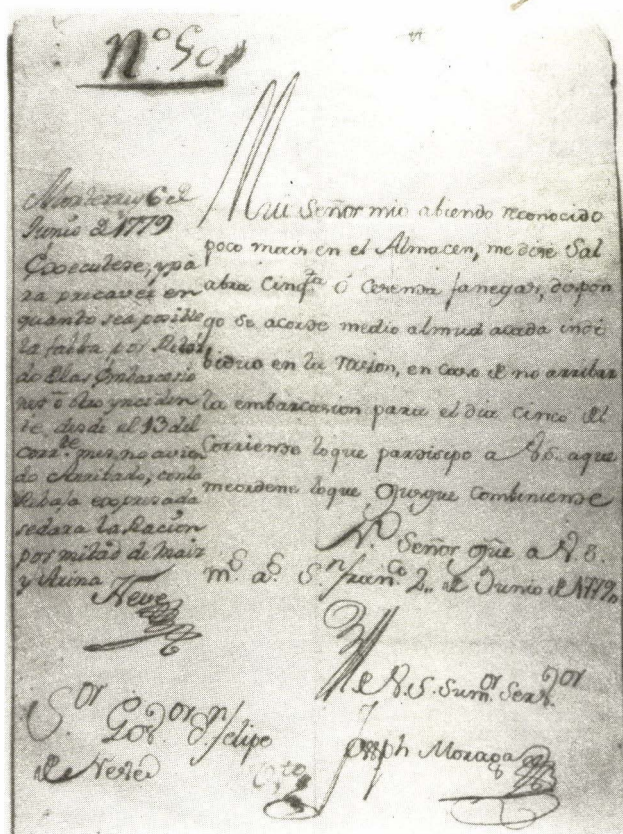 No. 50
Monterrey 6 de
Junio de 1779
Executese, y pa
ra precaver en
quanto sea posible
la falta por
do Elas Embarcacio
nes ô otro ynciden
te, desde el 13 del
corr.te mes, no avien
do Arribado, conla
Rebaja expresada
sedara la Racion
por mitad de Maiz
y Arina
Neve
Mui Señor mio abiendo reconocido
poco mais en el Almacen, me dise Sal
abra Cinq.ta ó Cesenta fanegas, dispon
go se acorte medio almud acada indi
biduo en la racion, en caso de no arribar
la embarcasion para el dia Cinco del
Corriense loque parsisipo a V.S. aque
meordene loque Jusgue Combiniense
N. Señor gue a V.S.
m.s a.s S.n Fran.co 2,, de Junio de 1779,,
de V.S. Sum.or Serv.dor
Joseph Moraga
S.or Gov.or D.n Felipe
de Neve